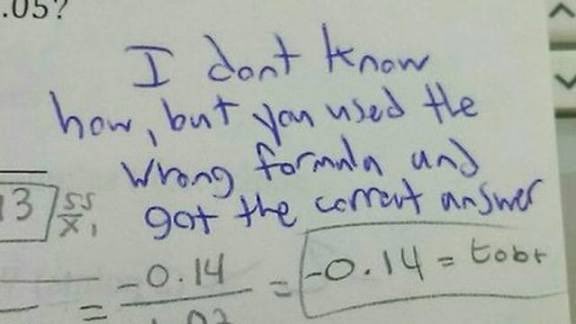 .05?
I dont know
how, but you used the
wrong formula and
got the correct answer
13 SS x̄₁
= -0.14 = -0.14 = tobt